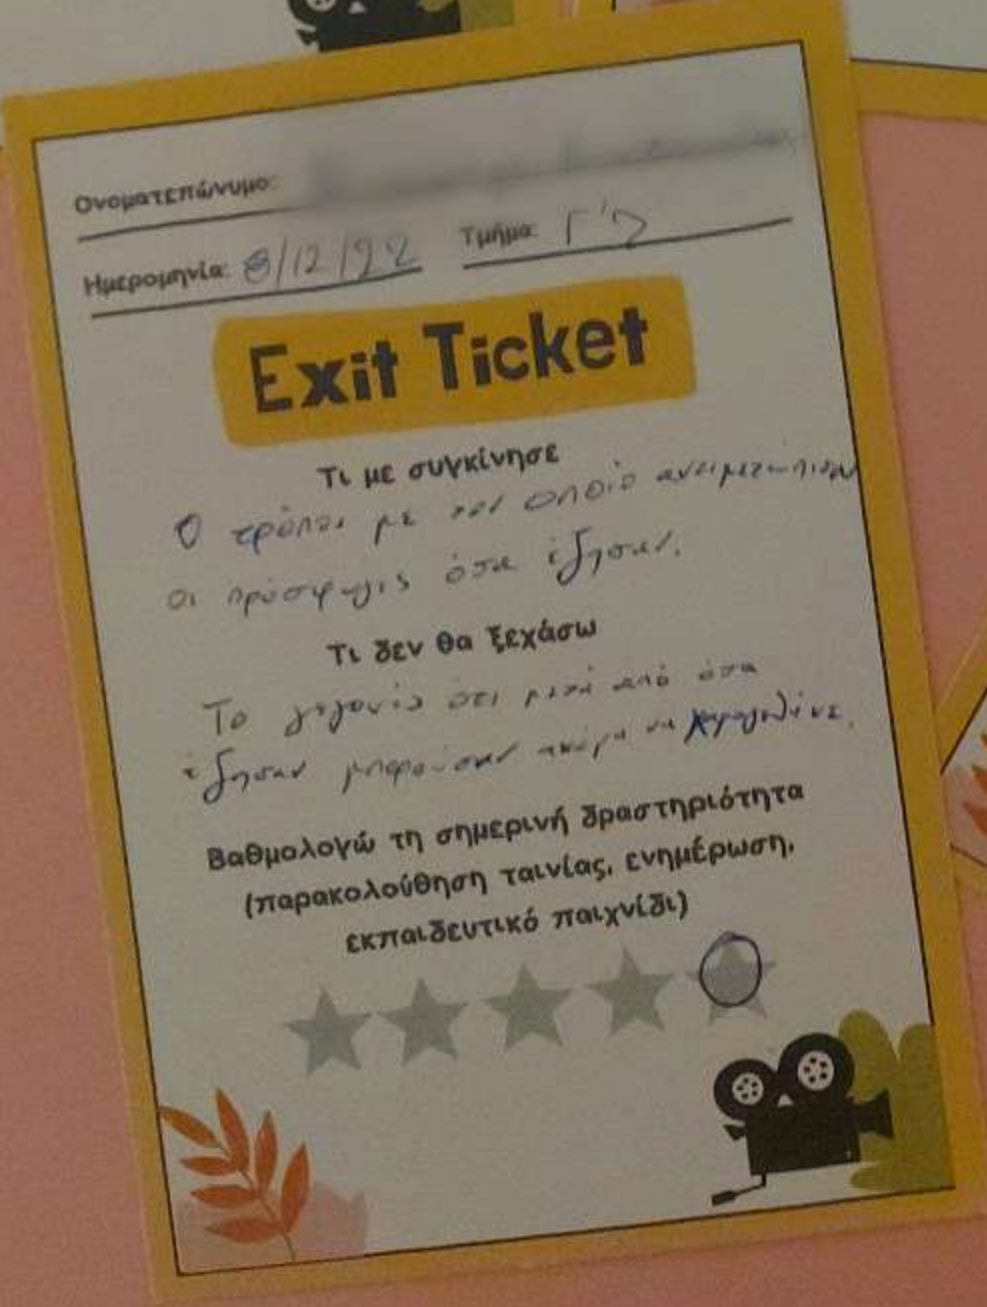 Ονοματεπώνυμο:
Ημερομηνία: 8/12/22 Τμήμα: Γ'2
Exit Ticket
Τι με συγκίνησε
Ο τρόπος με τον οποίο αντιμετώπισαν
οι πρόσφυγες όσα έζησαν.
Τι δεν θα ξεχάσω
Το γεγονός ότι μετά από όσα
έζησαν μπορούσαν ακόμα να χαμογελάνε.
Βαθμολογώ τη σημερινή δραστηριότητα
(παρακολούθηση ταινίας, ενημέρωση,
εκπαιδευτικό παιχνίδι)